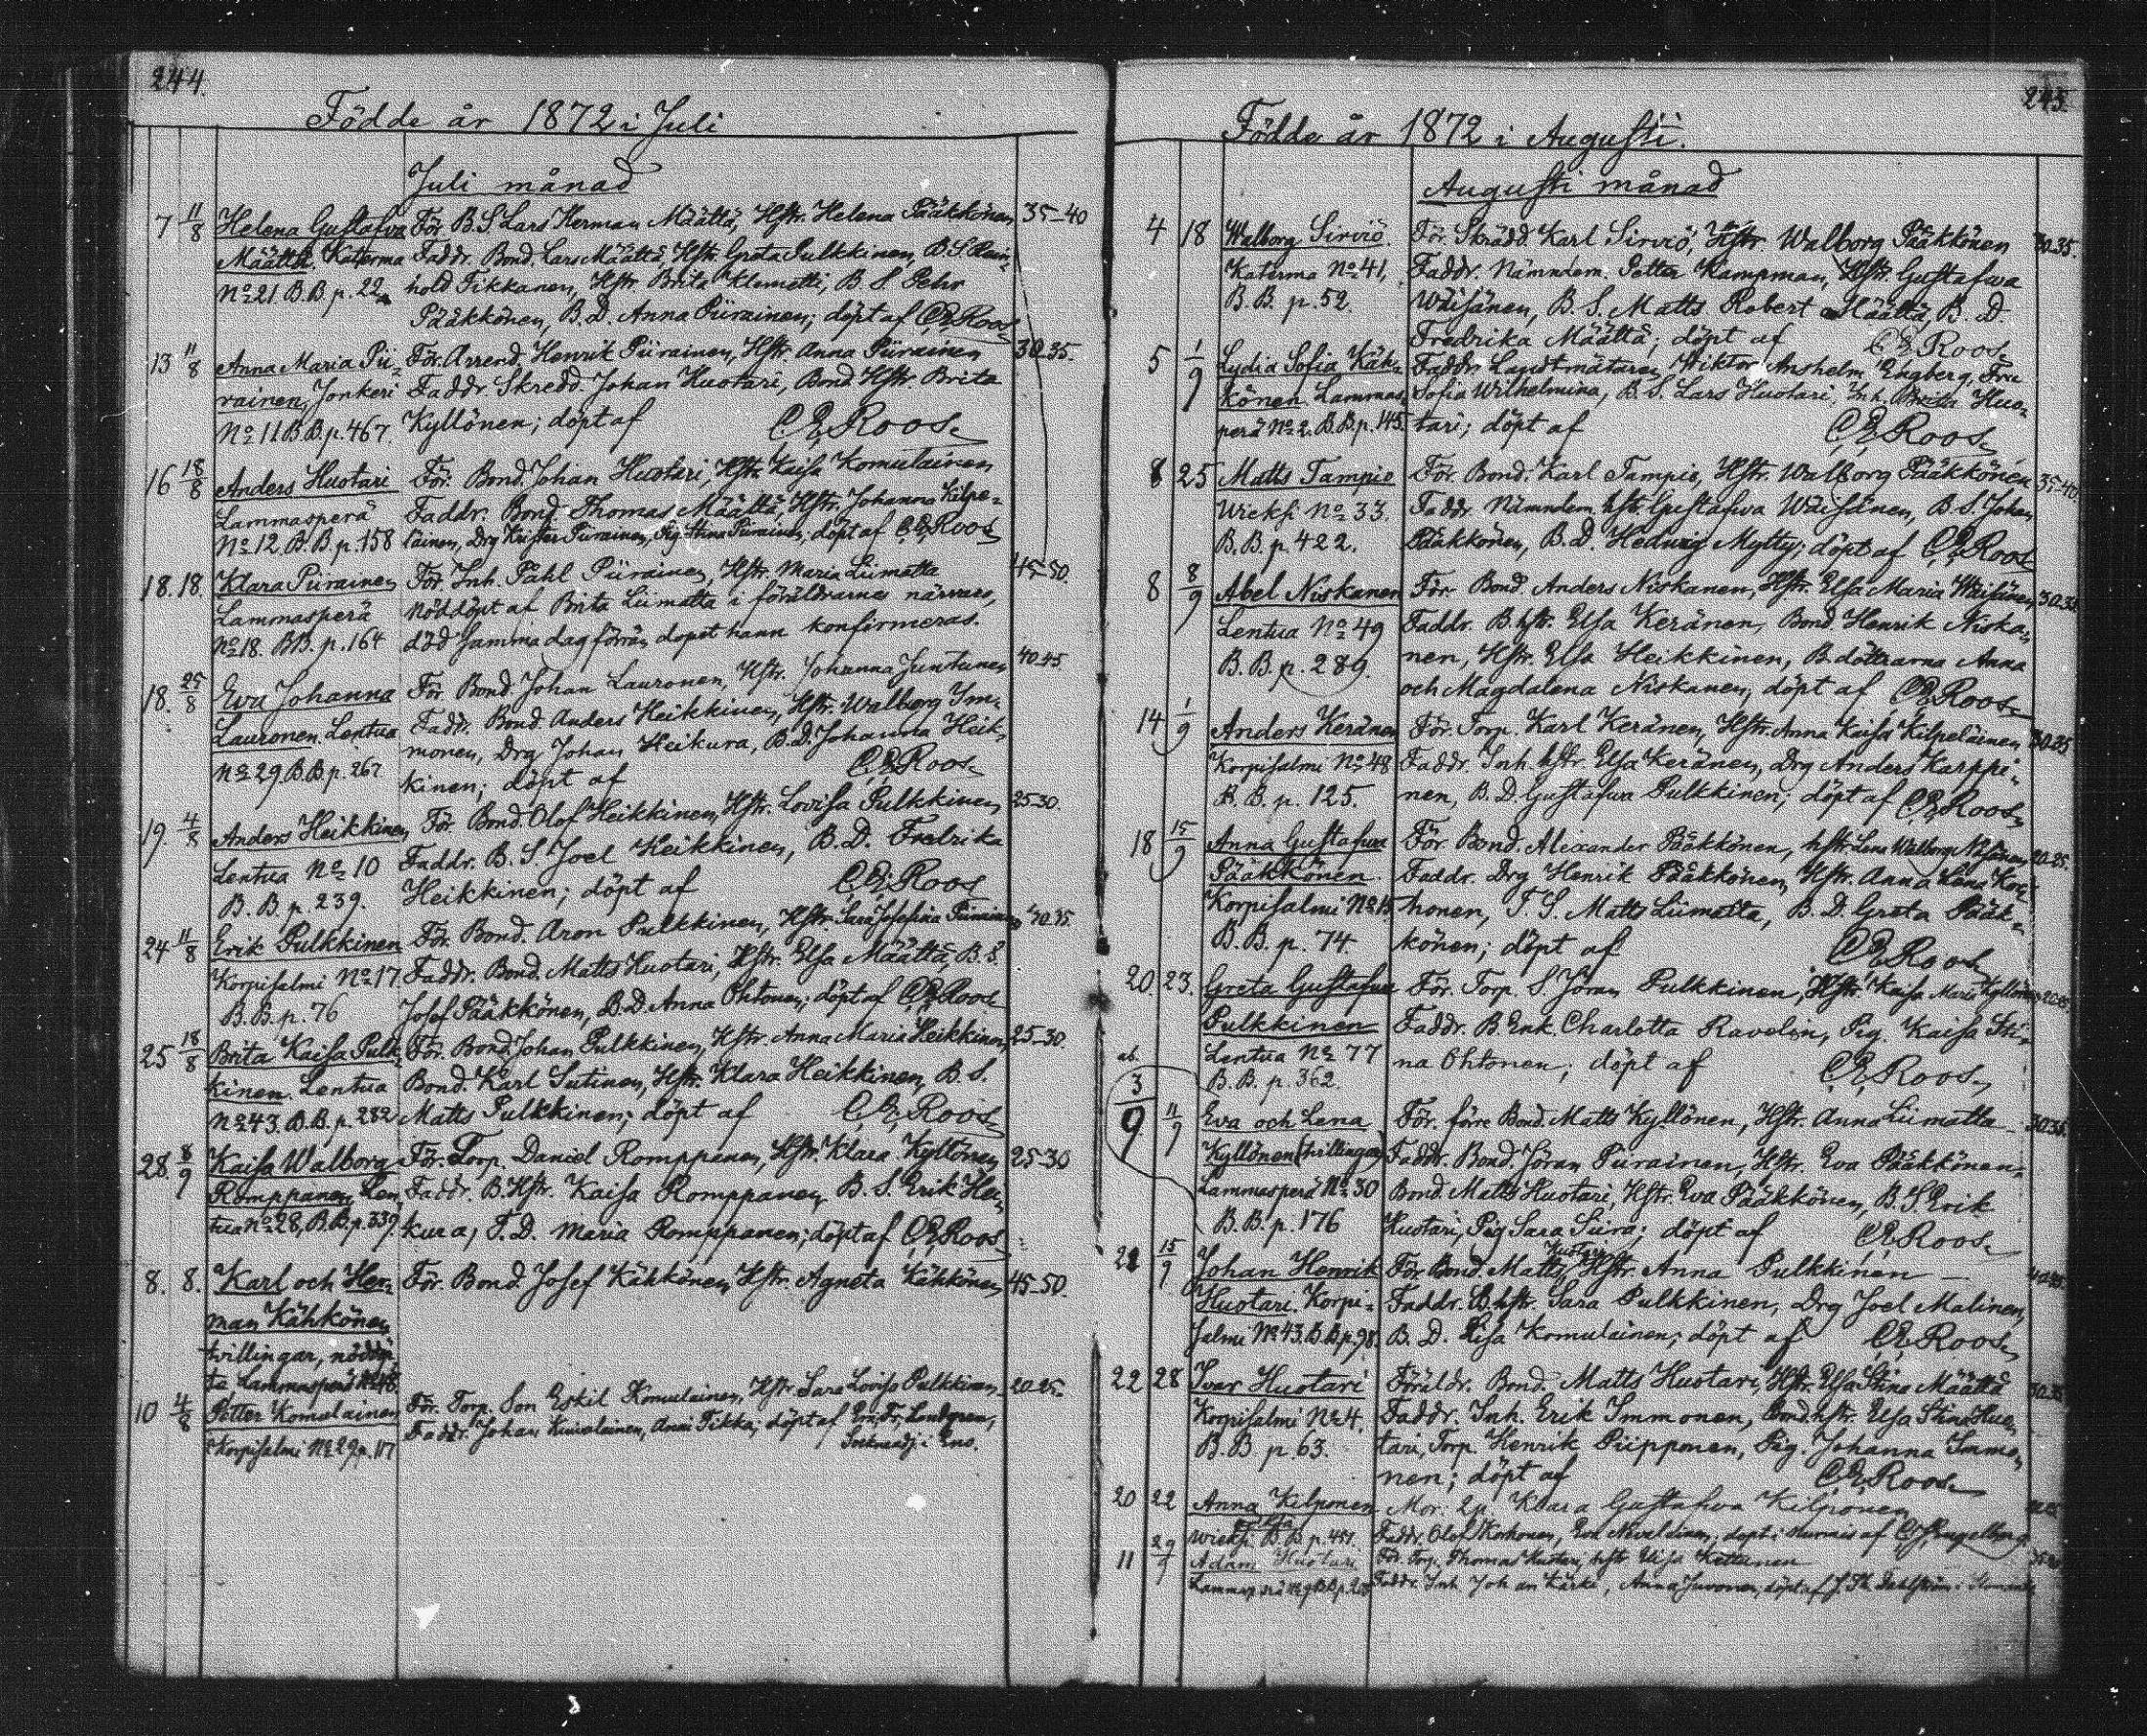 244.
Födde år 1872 i Juli
Juli månad
7 11/8 Helena Gustafva För. B.S. Lars Herman Määttä, Hstr. Helena Pääkkönen 35-40
Määttä. Katerma Faddr. Bond. Lars Määttä, Hstr. Greta Pulkkinen, B.S. Rein-
No 21 B.B. p. 22 hold Tikkanen, Hstr Brita Klematti, B.S. Pehr
Pääkkönen, B.D. Anna Piirainen; döpt af C.E. Roos
13 11/8 Anna Maria Pii- För. Arrend. Henrik Piirainen, Hstr. Anna Piirainen 30-35.
rainen, Jonkeri Faddr. Skredd. Johan Huotari, Bond. Hstr. Brita
No 11 B.B. p. 467. Kyllönen; döpt af C.E. Roos.
16 18/8 Anders Huotari För. Bond. Johan Huotari, Hstr. Kaisa Komulainen
Lammasperä Faddr. Bond. Thomas Määttä, Hstr. Johanna Kilpe-
No 12 B.B. p. 158 läinen, Drg Krister Piirainen, Pig. Stina Piirainen, döpt af C.E. Roos
18. 18. Klara Piirainen För. Inh. Påhl Piirainen, Hstr. Maria Liimatta 45-50.
Lammasperä Nöddöpt af Brita Liimatta i föräldrarnes närvaro,
No 18. B.B. p. 164 död samma dag förrän dopet hann konfirmeras.
18. 25/8 Eva Johanna För. Bond. Johan Lauronen, Hstr. Johanna Juntunen 40-45
Lauronen. Lentua Fadr. Bond. Anders Heikkinen, Hstr. Walborg Im-
No 29 B.B. p. 267 monen, Drg Johan Heikura, B.D. Johanna Heik-
kinen; döpt af C.E. Roos
19. 4/8 Anders Heikkinen För. Bond. Olof Heikkinen, Hstr. Lovisa Pulkkinen 25-30.
Lentua No 10 Faddr. B.S. Joel Heikkinen, B.D. Fredrika
B.B. p. 239. Heikkinen; döpt af C.E. Roos
24 11/8 Erik Pulkkinen För. Bond. Aron Pulkkinen, Hstr. Sara Josefina Piirainen 30-35.
Korpisalmi No 17 Faddr. Bond. Matts Huotari, Hstr. Elsa Määttä, B.S.
B.B. p. 76 Josef Pääkkönen, B.D. Anna Ohtonen; döpt af C.E. Roos
25 18/8 Brita Kaisa Pulk- För. Bond. Johan Pulkkinen, Hstr. Anna Maria Heikkinen 25-30
kinen. Lentua Bond. Karl Sutinen, Hstr. Klara Heikkinen, B.S.
No 43. B.B. p. 282 Matts Pulkkinen; döpt af C.E. Roos
28. 8/9 Kaisa Walborg För. Torp. Daniel Romppanen, Hstr. Klara Kyllönen 25-30
Romppanen, Len- Faddr. B.Hstr. Kaisa Romppanen, B.S. Erik Hei-
tua No 28, B.B. p. 339. kura, T.D. Maria Romppanen; döpt af C.E. Roos
8. 8. Karl och Her- För. Bond. Josef Kähkönen, Hstr. Agneta Kähkönen 45-50.
man Kähkönen
tvillingar, nöddöp-
ta Lammasperä No 48.
10 4/8 Petter Komulainen För. Torp. Son Eskil Komulainen, Hstr. Sara Lovisa Pulkkinen 20-25.
Korpisalmi No 29 p. 117 Faddr. Johan Kuivalainen, Anni Tikka; döpt af Em. Fr. Londgren,
Socknadj. i Eno.
245.
Födde år 1872 i Augusti.
Augusti månad
4 18 Walborg Sirviö. För. Skrädd. Karl Sirviö, Hstr Walborg Pääkkönen 30-35.
Katerma No 41, Faddr. Nämndem. Petter Kampman, Hstr. Gustafwa
B.B. p. 52. Wäisänen, B.S. Matts Robert Määttä, B.D.
Fredrika Määttä; döpt af C.E. Roos.
5 1/9 Lydia Sofia Käh- Faddr. Landtmätaren Wiktor Anshelm Engberg, Fru
könen Lammas- Sofia Wilhelmina, B.S. Lars Huotari, Inh. Brita Huo-
perä No 2. B.B. p. 145. tari; döpt af C.E. Roos
8 25 Matts Tampio För. Bond. Karl Tampio, Hstr. Walborg Pääkkönen 35-40.
Wieksi No 33. Faddr. Nämndem. hstr. Gustafwa Wäisänen, B.S. Johan
B.B. p. 422. Pääkkönen, B.D. Hedwig Mylty; döpt af C.E. Roos
8 8/9 Abel Niskanen För. Bond. Anders Niskanen, Hstr. Elsa Maria Wäisänen 30-35
Lentua No 49 Faddr. B.hstr. Elsa Keränen, Bond. Henrik Niska-
B.B. p. 289. nen, Hstr. Elsa Heikkinen, B.döttrarna Anna
och Magdalena Niskanen, döpt af C.E. Roos.
14 1/9 Anders Keränen För. Torp. Karl Keränen, Hstr. Anna Kaisa Kilpeläinen 30-35
Korpisalmi No 48 Faddr. Inh. hstr. Elsa Keränen, Drg Anders Karppi-
B.B. p. 125. nen, B.D. Gustafwa Pulkkinen; döpt af C.E. Roos
18 15/9 Anna Gustafwa För. Bond. Alexander Pääkkönen, hstr. Lena Walborg 20-25.
Pääkkönen. Faddr. Drg Henrik Pääkkönen, Hstr. Anna Lena Kor-
Korpisalmi No 15 honen, T.S. Matts Liimatta, B.D. Greta Pääk-
B.B. p. 74. könen; döpt af C.E. Roos
20. 23. Greta Gustafwa För. Torp. S. Jöran Pulkkinen, Hstr. Kaisa Maria Kyllönen
Pulkkinen Faddr. B.Enk. Charlotta Ravelin, Pig. Kaisa Sti-
Lentua No 77 na Ohtonen; döpt af C.E. Roos
B.B. p. 362.
3/9 11/9 Eva och Lena För. förre Bond. Matts Kyllönen, Hstr. Anna Liimatta 30-35.
Kyllönen (tvillingar) Faddr. Bond. Jöran Piirainen, Hstr. Eva Pääkkönen,
Lammasperä No 30 Bond. Matts Huotari, Hstr. Eva Pääkkönen, B.S. Erik
B.B. p. 176 Huotari, Pig. Sara Siira; döpt af C.E. Roos
15/9 Johan Henrik För. Bond. Matts Huotari, Hstr. Anna Pulkkinen
Huotari. Korpi- Faddr. B.hstr. Sara Pulkkinen, Drg Joel Malinen,
salmi No 43. B.B. p. 98. B.D. Lisa Komulainen; döpt af C.E. Roos
22 28 Ivar Huotari Föräldr. Bond. Matts Huotari, Hstr. Elsa Stina Määttä
Korpisalmi No 4. Faddr. Inh. Erik Immonen, Bond. hstr. Elsa Stina Huo-
B.B. p. 63. tari, Torp. Henrik Piipponen, Pig. Johanna Immo-
nen; döpt af C.E. Roos
20 22 Anna Kilponen Mor: Klara Gustafwa Kilponen
Wieksi B.B. p. 451. Faddr. Olof Korhonen,
11 29/7 Adam Huotari För. Torp. Thomas Huotari, hstr
Faddr. Inh. Johan Kärki, Anna Juvonen, döpt af